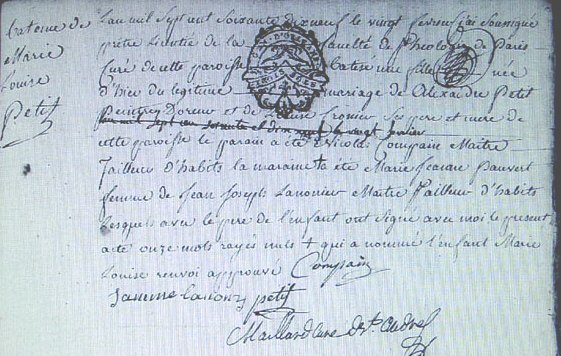 batême de
Marie
Louise
Petit
L'an mil sept cent soixante dix neuf le vingt fevrier j'ai soussigné
prêtre Licentié de la faculté de Theologie de Paris
curé de cette paroisse batisé une fille née
d'hier du legitime mariage de Alexandre Petit
Peintre Doreur et de Louise ses pere et mere de
l'an mil sept cent soixante et dix neuf le vingt
cette paroisse le parain a été Nicolas Compain Maitre
Tailleur d'habits la maraine + a été Marie Jeanne Pauvert
femme de Jean Joseph Lanonier Maitre Tailleur d'habits
lesquels avec le pere de l'enfant ont signé avec moi le present
acte onze mots rayés nuls + qui a nommé l'enfant Marie
Louise renvoi approuvé Compain
petit
Maillard curé de St. André